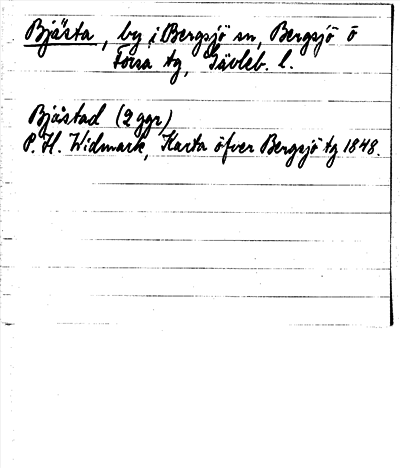 Bjåsta, by i Bergsjö sn, Bergsjö o
Forsa tg, Gävleb. l.
Bjåstad (2 ggr)
P. H. Widmark, Karta öfver Bergsjö tg 1848.